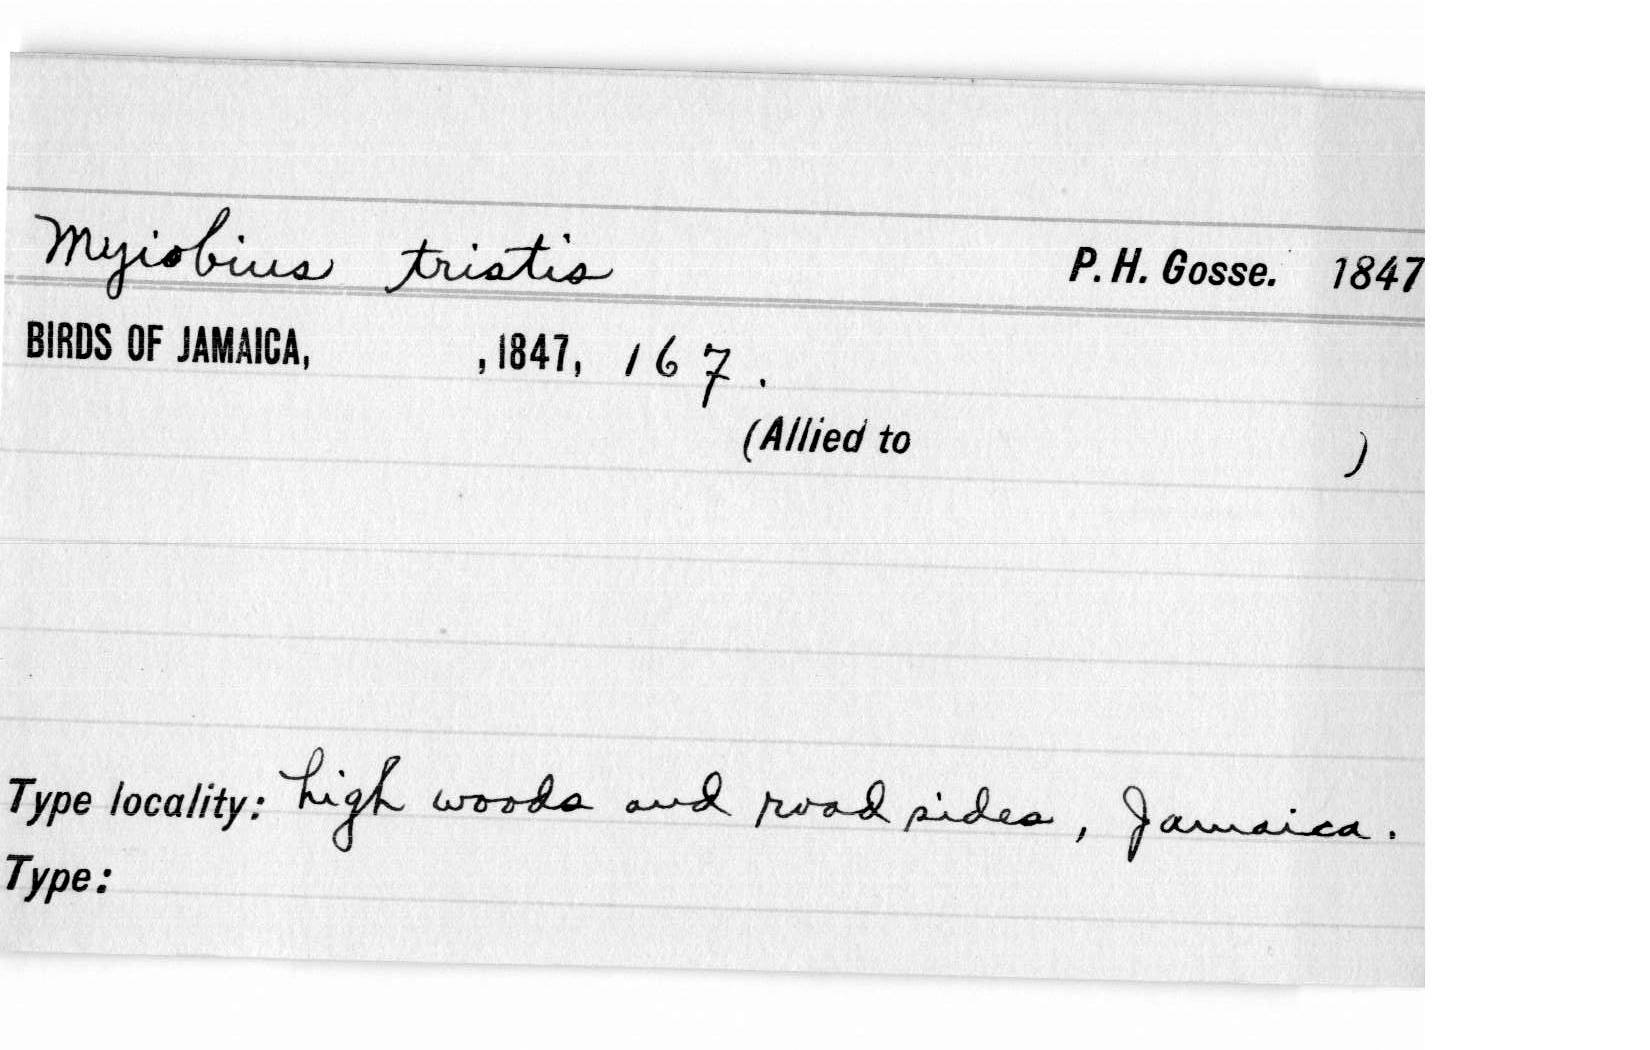 Myiobius tristis P. H. Gosse. 1847
BIRDS OF JAMAICA, , 1847, 167.
(Allied to )
Type locality: high woods and road sides, Jamaica.
Type: